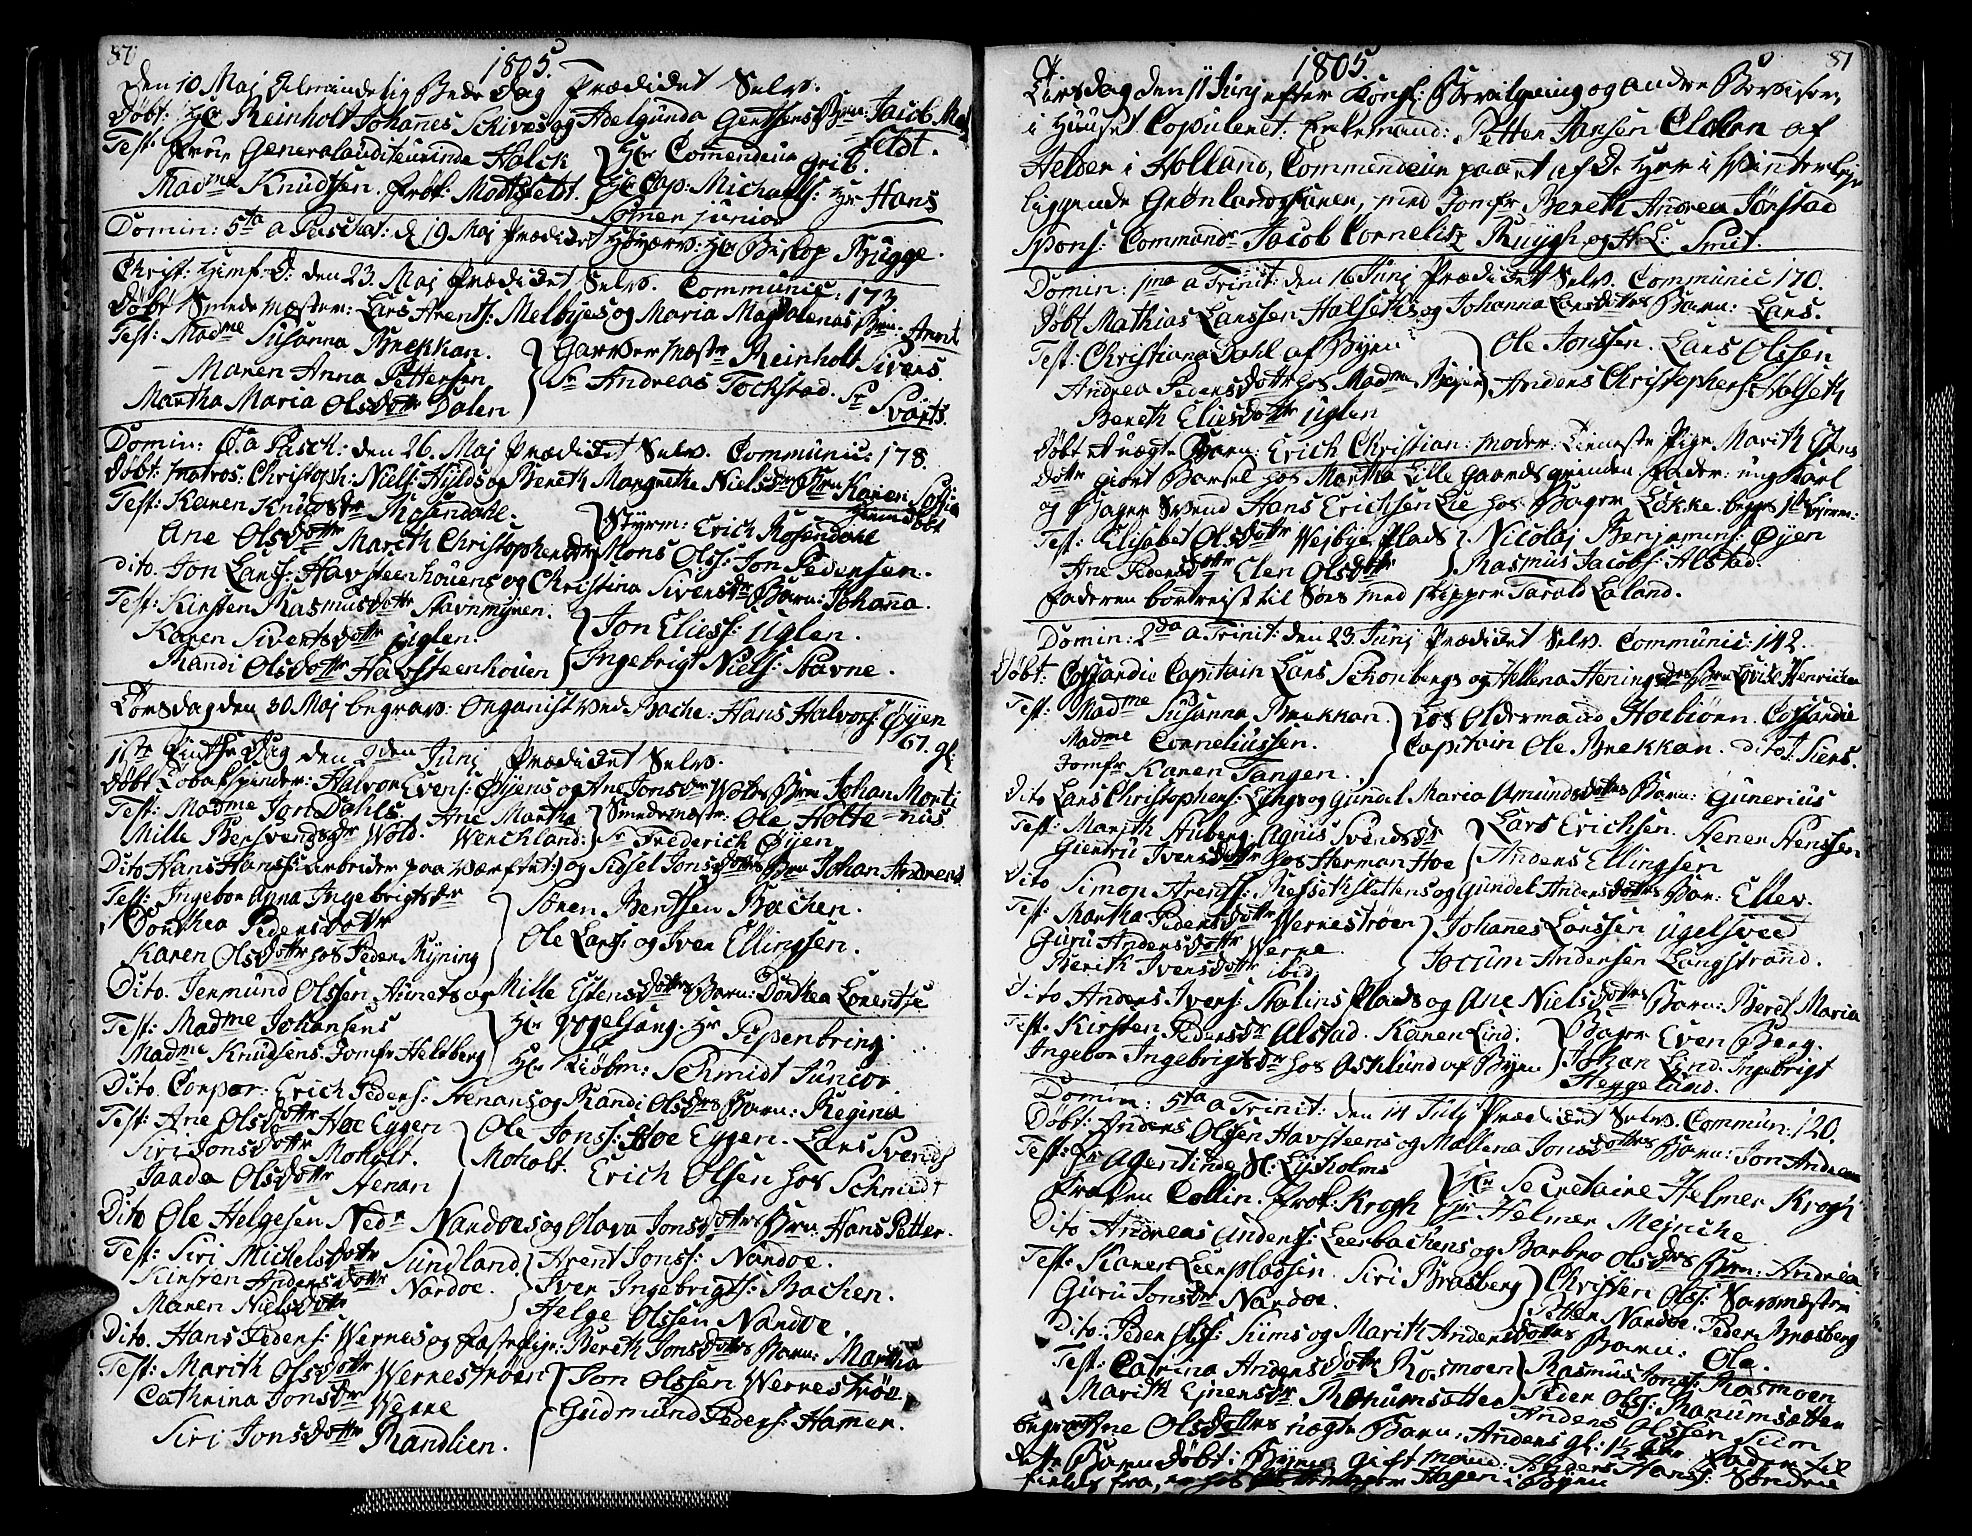 87
1805.
Den 10 Maj Almindelig Bede Dag Prædiket Selv.
Døbt: Hr Reinholt Johannes Schives og Adelgunda Gertsens Barn: Jacob
Feldt.
Test: Frue Generalauditeurinde Halck Hr Commendeur Grib.
Madme Knudtsen. Frøk: Modtzfeldt. Hr Cap: Michaels: Hr Hans
junior
Domin: 5ta a Paschat: d 19 Maj Prædiket Høyærv: Hr Biskop Bugge.
Christ: Himf: D: den 23. Maj Prædiket Selv. Communic: 173
Døbt Smede Mæster: Lars Arents: Melbyes og Maria Magdalenas Brn: Arent
Test: Madme Susanna Brekkan. Garver Mæstr Reinholt Sivers.
Maren Anna Pettersen Sr Andreas Tochstad. Sr
Martha Maria Olsdottr Dalen Svarts.
Domin: 6ta a Pasch: den 26. Maj Prædiket Selv. Communic: 178.
Døbt: Matros: Christoph: Niels: Hylds og Bereth Margrethe Nielsdtrs Brn Karen Sofia
hiemdøbt
Test: Karen Knudsdtr Rosendahl. Styrm: Erich Rosendahl
Ane Olsdottr Marith Christophersdtr Mons Ols: Jon Pedersen.
Dito. Jon Lars: Havsteenhouens og Christina Siversdtrs Barn: Johanna.
Test: Kirsten Rasmusdottr Stavnmyren. Jon Elies: Uglen.
Karen Sivertsdottr Uglen. Ingebrigt Niels: Stavne.
Randi Olsdottr Havsteenhouen
Torsdag den 30 Maj begrav: Organist ved Bache: Hans Halvors: Øyen
67. gl:
1ste Pintse Dag den 2den Junj Prædiket Selv.
Døbt Tobakspinder: Halvor Evens: Øyens og Ane Jonsdtr Wolds Brn Johan Morti
nus.
Test: Madme Jon Dahls. Ane Martha Smedemæstr: Ole Holte
Mille Bersvendsdtr Wold. Werchland: Sr Frederich Øyen
Dito Hans Hans: arbeider paa Værftet: og Sidsel Jonsdottrs Brn Johan Andreas
Test: Ingebor Anna Ingebrigtsdtr Sören Bentsen Bachen.
Dorthea Pedersdottr Ole Lars: og Iver Ellingsen.
Karen Olsdottr hos Peder Ryning
Dito. Jermund Olssen Aunets og Mille Estensdottrs Barn: Dorthea Lorentze
Test: Madme Johansens Hr Vogelsang. Hr Pipenbring
Madme Knudsens. Jomfr Heltberg Hr Kiøbm: Schmidt Junior.
Dito. Corpor: Erich Peders: Stenans og Randi Olsdtrs Barn: Regina
Test: Ane Olsdottr Hoe Eggen Ole Jons: Hoe Eggen. Lars Svends
Siri Jonsdottr Moholt. Moholt. Erich Olsen hos Schmidt
Jaada Olsdottr Stenan
Dito Ole Helgesen Nedr Nardoes og Olava Jonsdottrs Brn: Hans Petter.
Test: Siri Michelsdottr Sundland Arent Jons: Nardoe.
Kirsten Andersdottr Nardoe. Iver Ingebrigts: Bachen.
Maren Nielsdottr Helge Olssen Nardoe.
Dito. Hans Peders: Wernes og Fæstepige: Bereth Jonsdottrs Barn: Martha
Test: Marith Olsdottr Wernestrøen Jon Olssen Wernestrøe
Cathrina Jonsdtr Werne Gudmund Peders: Hamer.
Siri Jonsdottr Randlien.
87
1805.
Tirsdag den 11 Junj efter Kongl: Bevilgning og andre Beviser,
i Huuset Copuleret: Enkemand: Petter Jansen Clasen af
Helder i Holland, Commendeur paa et af de her i Winterleye
liggende Grønlandsfarere, med Jomfr Bereth Andrea Jørstad
Spons: Commandr Jacob Cornelisz Ruygh og H: L: Smit.
Domin: 1ma a Trinit: den 16 Junj Prædiket Selv. Communic 170.
Døbt Mathias Larssen Halseths og Johanna Larsdottrs Barn: Lars.
Test: Christiana Dahl af Byen Ole Jonssen. Lars Olssen
Andrea Pedersdottr hos Madme Beyer Anders Christophers: Halseth
Bereth Eliesdottr Uglen
Døbt et uægte Barn: Erich Christian: Moder: Tieneste Pige Marith Estens
dottr giort Barsel hos Martha Lillegaardsgrinden. Fader: ung Karl
og Bager Svend Hans Erichsen Lie hos Bager Løkke. begges 1ste Leierm:
Test: Elisabet Olsdottr Wejbye Plads Nicolaj Benjamins: Øyen
Ane Pedersdottr Elen Olsdottr Rasmus Jacobs: Alstad.
Faderen bortreist til Søes med Skipper Tarald Laland.
Domin: 2da a Trinit: den 23. Junj Prædiket Selv. Communic: 142.
Døbt: Coffardie Capitain Lars Schonbergs og Hellena Heningsdtrs Brn Lovise Henricka
Test: Madme Susanna Brekkan. Los Oldermand Holbiörn. Coffardie
Madme Corneliussen. Capitain Ole Brekkan. dito J. Siers.
Jomfr Karen Tangen.
Dito Lars Christophers: Lyngs og Gundel Maria Amundsdottrs Barn: Gunerius
Test: Marith Stuberg. Agnis Svendsdtr Lars Erichsen. Stener Stenssen
Giertru Iversdottr hos Herman Hoe Anders Ellingsen
Dito Simon Arents: Kefseths lettens og Gundel Andersdottrs Barn: Ellev.
Test: Martha Pedersdottr Wernestrøen Johanes Larssen Ugelsveed
Guru Andersdottr Werne Jocum Andersen Langstrand.
Berith Iversdottr ibid
Dito Anders Ivers: Stalins Plads og Ane Nielsdottrs Barn: Beret Maria
Test. Kirsten Pedersdtr Alstad. Karen Lind. Bager Even Berg.
Ingebor Ingebrigtsdtr hos Asklund af Byen Johan Lind. Ingebrigt
Heggelund.
Domin: 5ta a Trinit: den 14 July Prædiket Selv. Commun: 120.
Døbt: Anders Olssen Havsteens og Mallena Jonsdottrs Barn: Jon Andreas
Test: Fr Agentinde Sl: Lysholms Hr Secretaire Helmer Krogh
Frøken Collin. Frøk: Krogh Hr Helmer Mejncke
Dito Andreas Anders: Leerbachens og Barbro Olsdtrs Brn: Andrea
Test: Karen Leerpladsen. Siri Brasberg Christen Ols: Savmæster
Guru Jonsdtr Nardoe. Petter Nardoe. Peder Brasberg
Dito: Peder Ols: Siims og Marith Andersdottrs Barn: Ole.
Test: Catrina Andersdottr Rosmoen Rasmus Jons: Rosmoen
Marith Ejnersdtr Ranumsetter Peder Ols: Ranumsetter
Anders Olssen Siim
begrav: Ane Olsdottrs uægte Barn: Anders gl: 1½ Fader til
dette Barn Døbt i Byen gift Mand: Anders Hans: Søndre